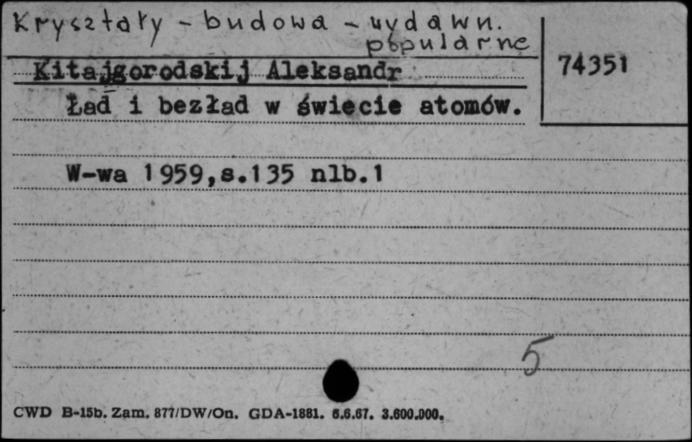 Kryształy - budowa - wydawn.
popularne
Kitajgorodskij Aleksandr
74351
Ład i bezład w świecie atomów.
W-wa 1959,s.135 nlb.1
5
CWD B-15b. Zam. 877/DW/On. GDA-1881. 6.6.67. 3.600.000.